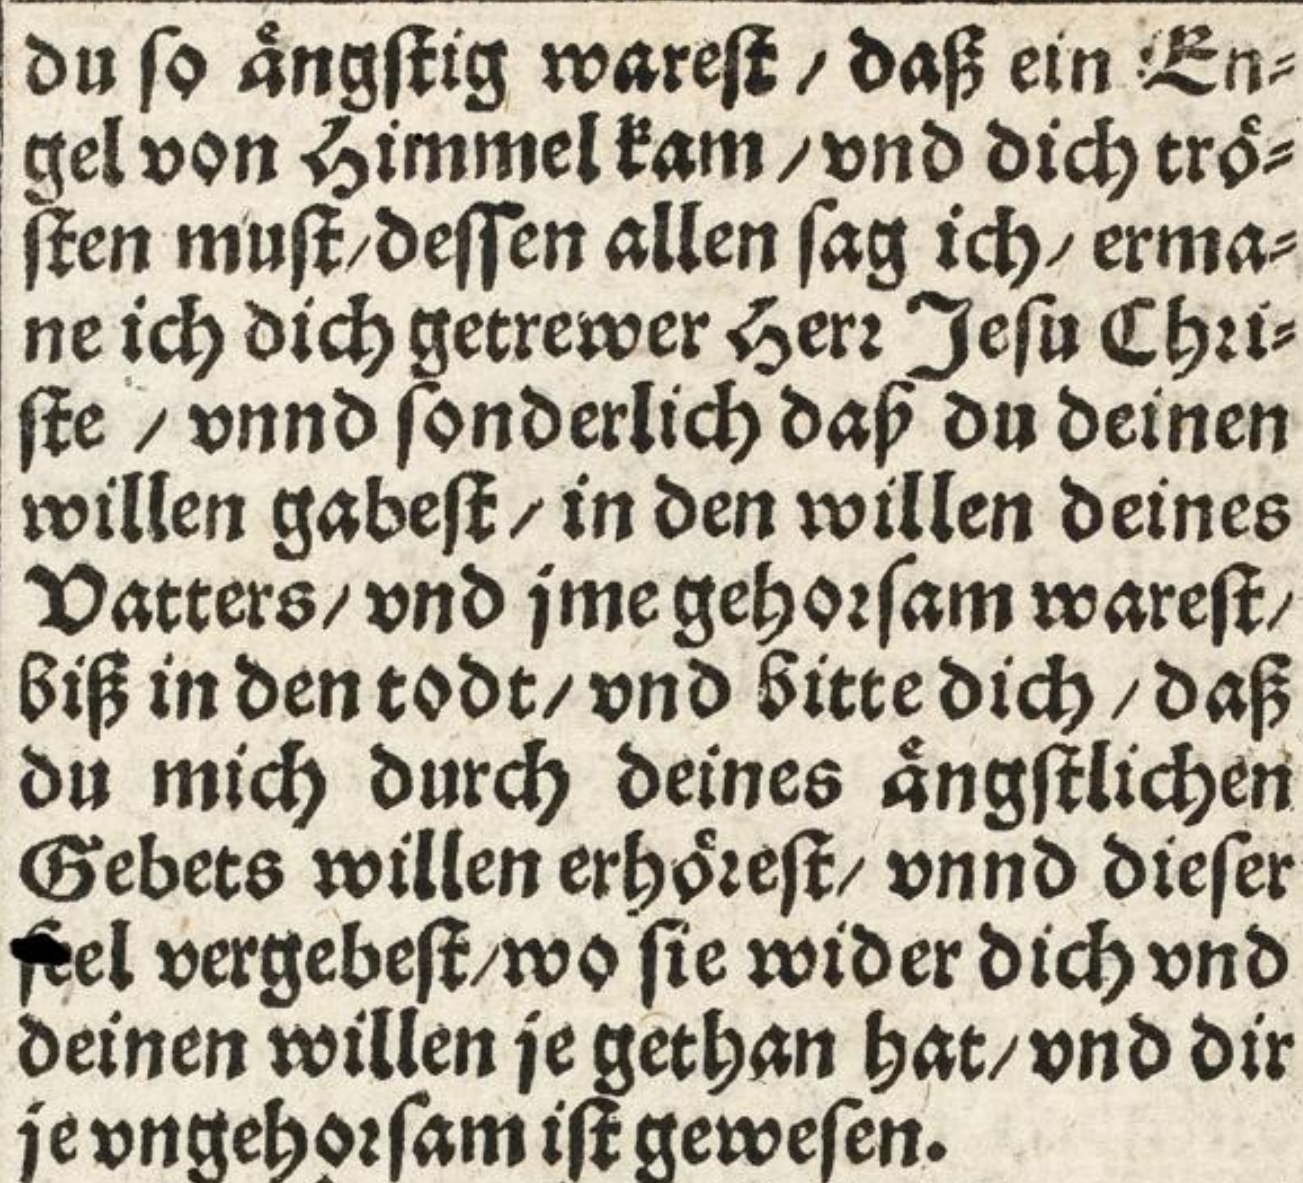 du ſo aͤngſtig wareſt / daß ein En⸗
gel von Himmel kam / vnd dich troͤ⸗
ſten muſt / deſſen allen ſag ich / erma⸗
ne ich dich getrewer Herꝛ Jeſu Chꝛi⸗
ſte / vnnd ſonderlich daß du deinen
willen gabeſt / in den willen deines
Vatters / vnd jme gehoꝛſam wareſt /
biß in den todt / vnd bitte dich / daß
du mich durch deines aͤngſtlichen
Gebets willen erhoͤꝛeſt / vnnd dieſer
ſeel vergebeſt / wo ſie wider dich vnd
deinen willen je gethan hat / vnd dir
je vngehoꝛſam iſt geweſen.